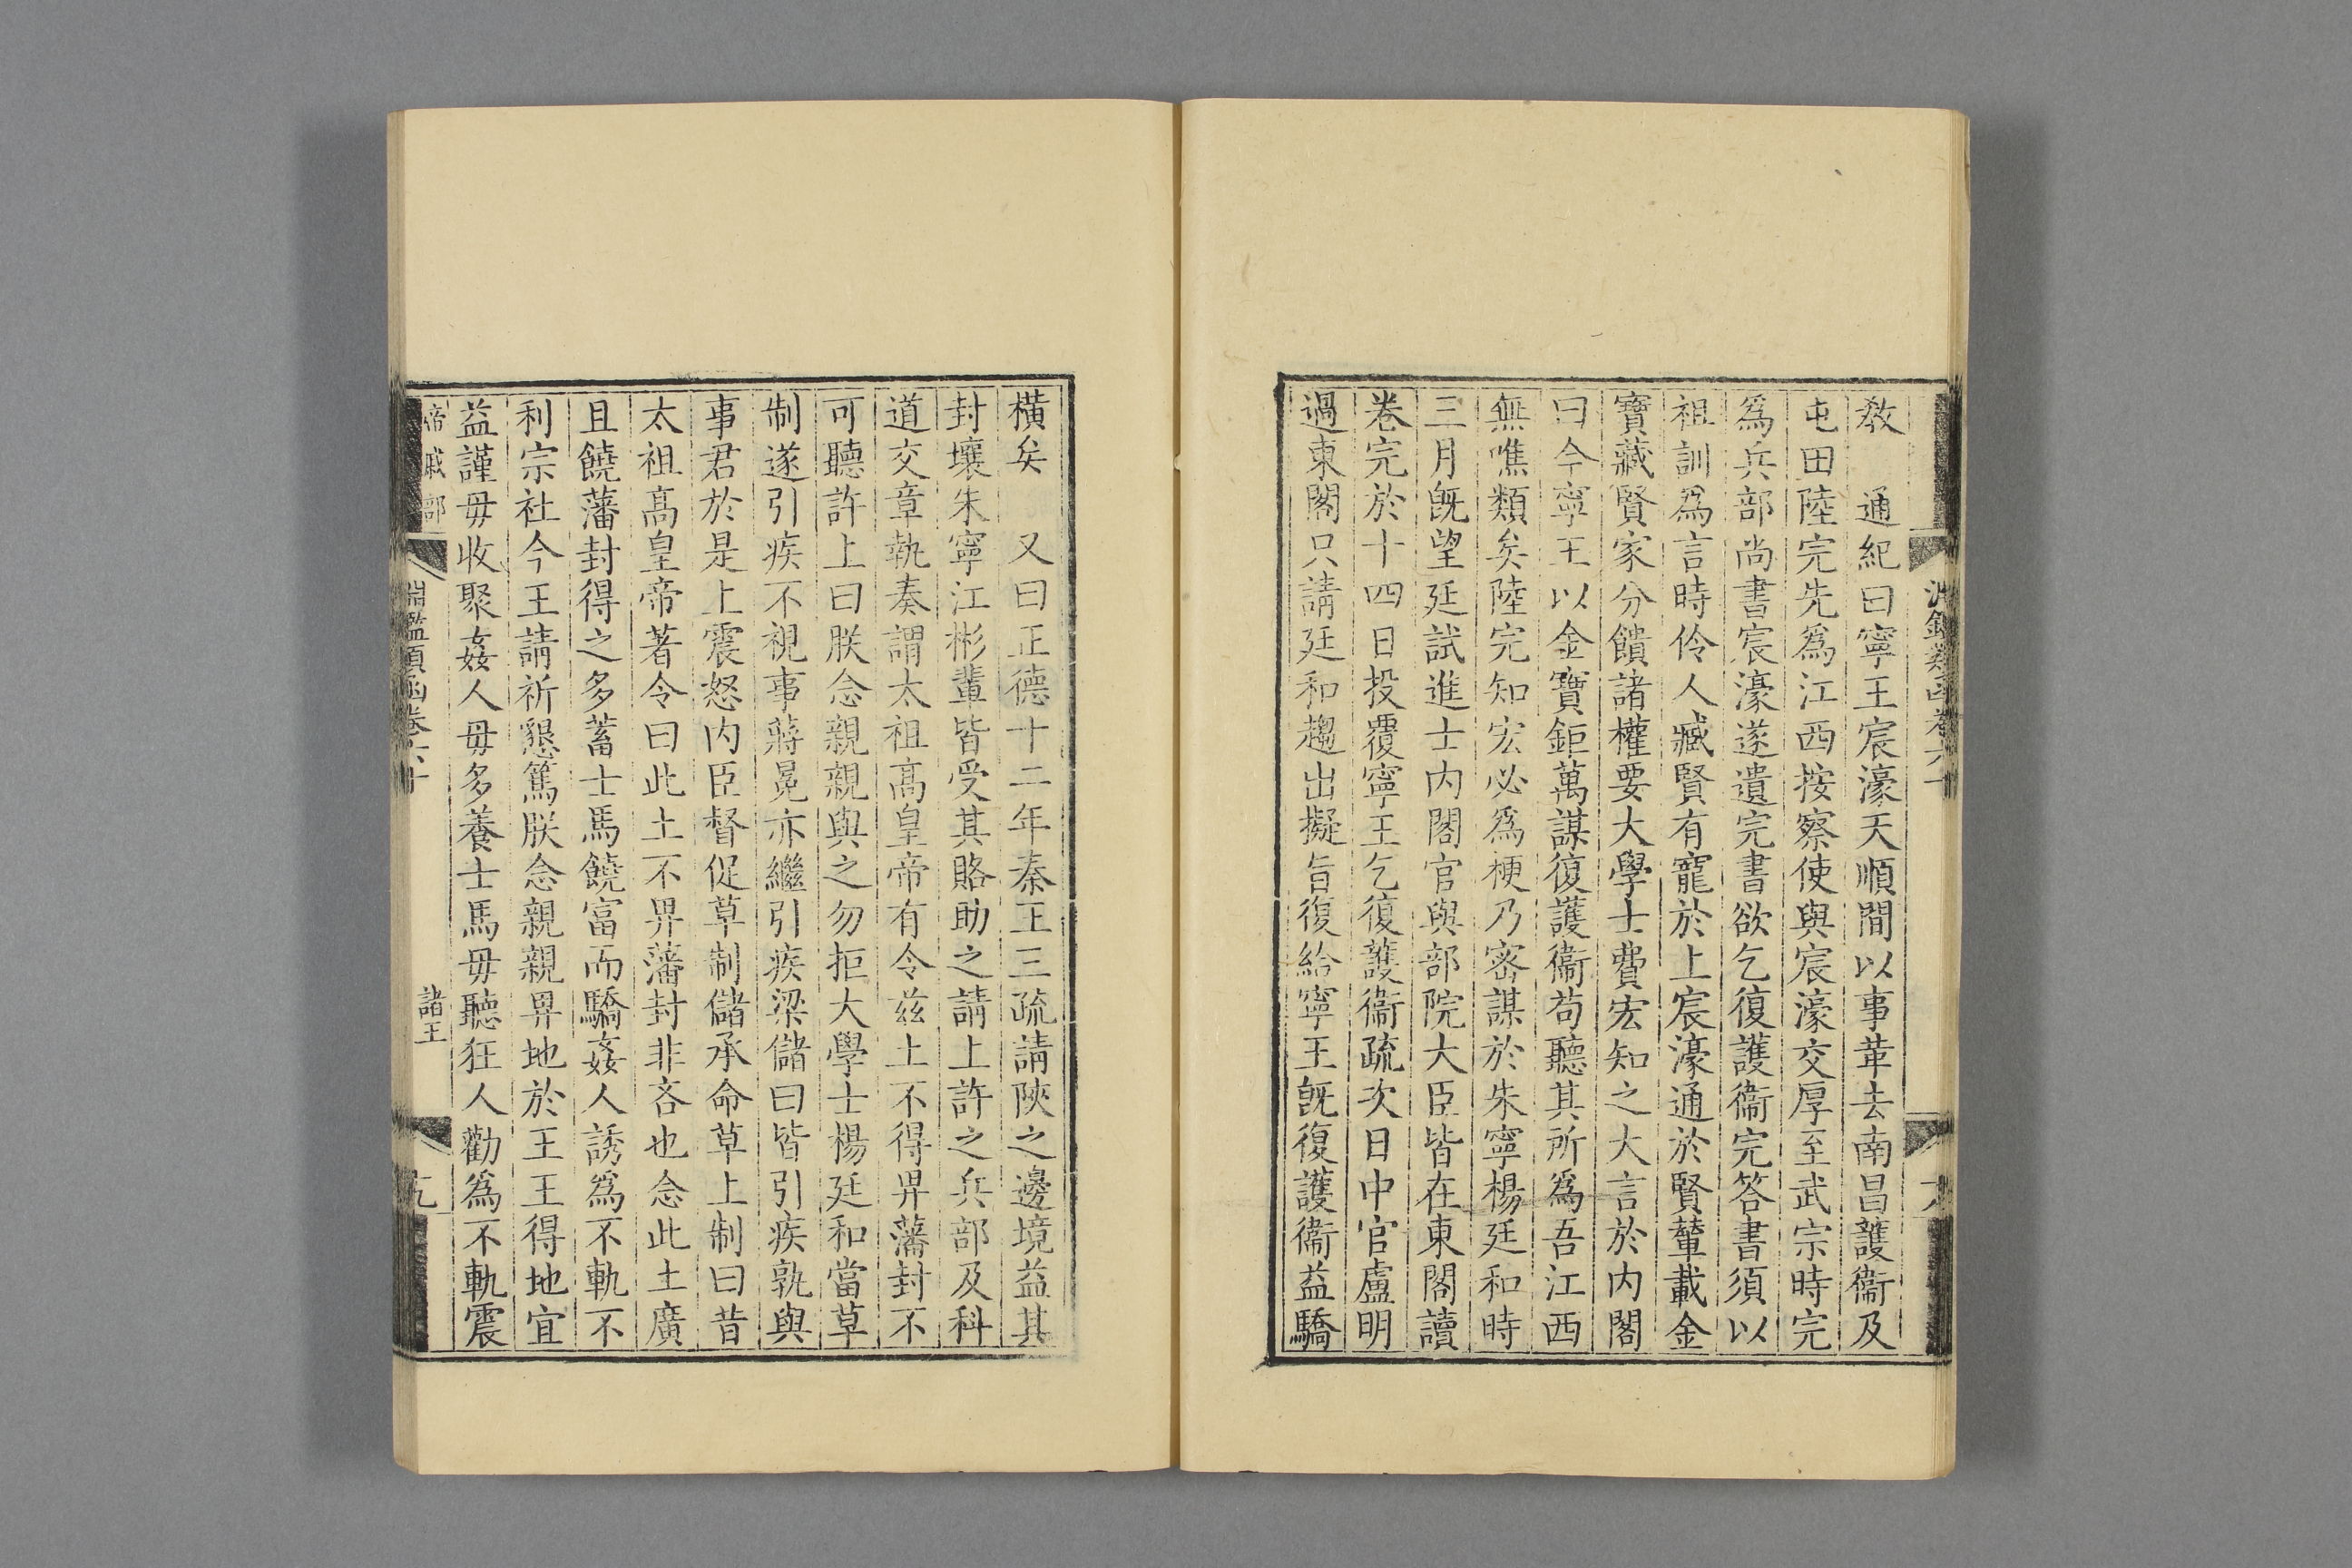 教　通紀曰寧王宸濠天順間以事革去南昌護衞及
屯田陸完先爲江西按察使與宸濠交厚至武宗時完
爲兵部尚書宸濠遂遺完書欲乞復護衞完答書須以
祖訓爲言時伶人臧賢有寵於上宸濠通於賢輦載金
寶藏賢家分饋諸權要大學士費宏知之大言於内閣
曰今寧王以金寶鉅萬謀復護衞苟聽其所爲吾江西
無噍類矣陸完知宏必爲梗乃密謀於朱寧楊廷和時
三月旣望廷試進士内閣官與部院大臣皆在東閣讀
卷完於十四日投覆寧王乞復護衞疏次日中官盧明
過東閣只請廷和趨出擬旨復給寧王旣復護衞益驕
橫矣　又曰正德十二年秦王三疏請陝之邊境益其
封壤朱寧江彬輩皆受其賂助之請上許之兵部及科
道交章執奏謂太祖高皇帝有令兹土不得畀藩封不
可聽許上曰朕念親親與之勿拒大學士楊廷和當草
制遂引疾不視事蔣冕亦繼引疾梁儲曰皆引疾孰與
事君於是上震怒内臣督促草制儲承命草上制曰昔
太祖高皇帝著令曰此土不畀藩封非吝也念此土廣
且饒藩封得之多蓄士馬饒富而驕姦人誘爲不軌不
利宗社今王請祈懇篤朕念親親畀地於王王得地宜
益謹毋收聚姦人毋多養士馬毋聽狂人勸爲不軌震
帝戚部　淵鑑類函卷六十　諸王　九